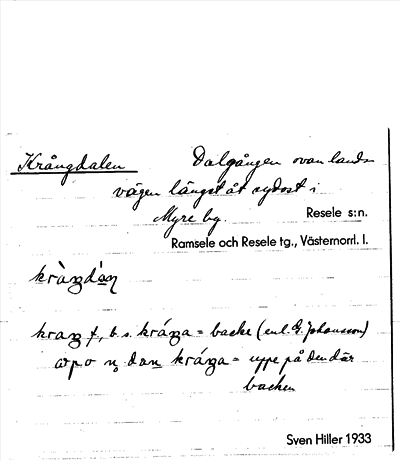 Krångdalen Dalgången ovan lands-
vägen längst åt sydost i
Myre by. Resele s:n.
Ramsele och Resele tg., Västernorrl. l.
kràŋdàɳ
kraŋ f, b. s. kráŋa = backe (enl. G. Johansson)
dan kráŋa = uppe på den där
backen
Sven Hiller 1933